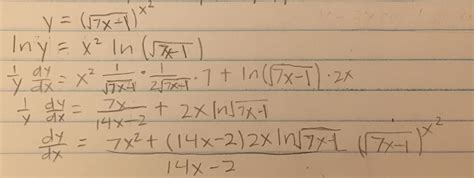 y = (√7x-1)^x²
ln y = x² ln(√7x-1)
1/y dy/dx = x² 1/√7x-1 · 1/2√7x-1 · 7 + ln(√7x-1) · 2x
1/y dy/dx = 7x/14x-2 + 2x ln√7x-1
dy/dx = 7x² + (14x-2)2x ln√7x-1 / 14x-2 (√7x-1)^x²